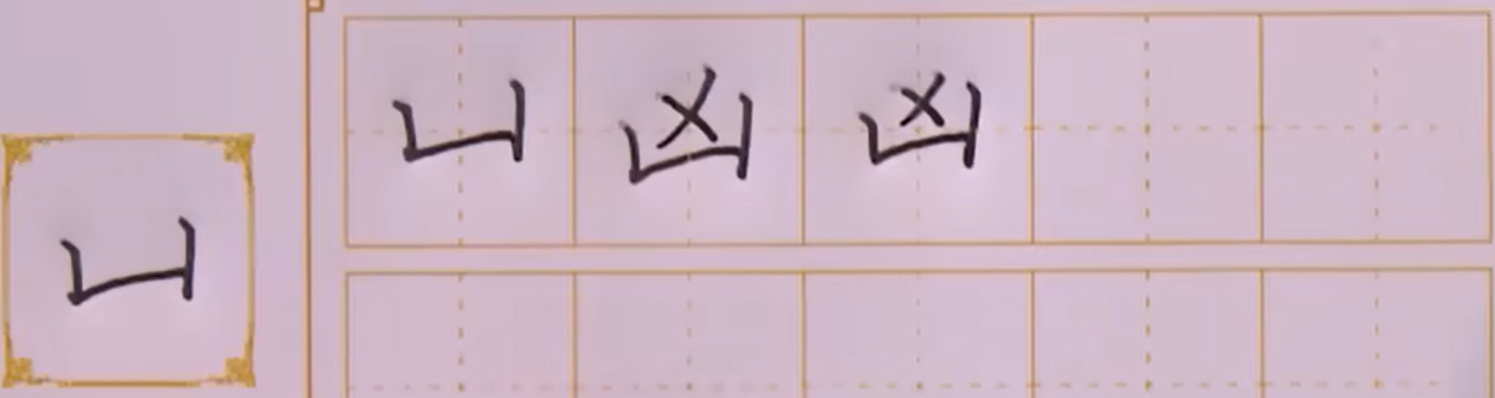 凵
凵 凶 凶